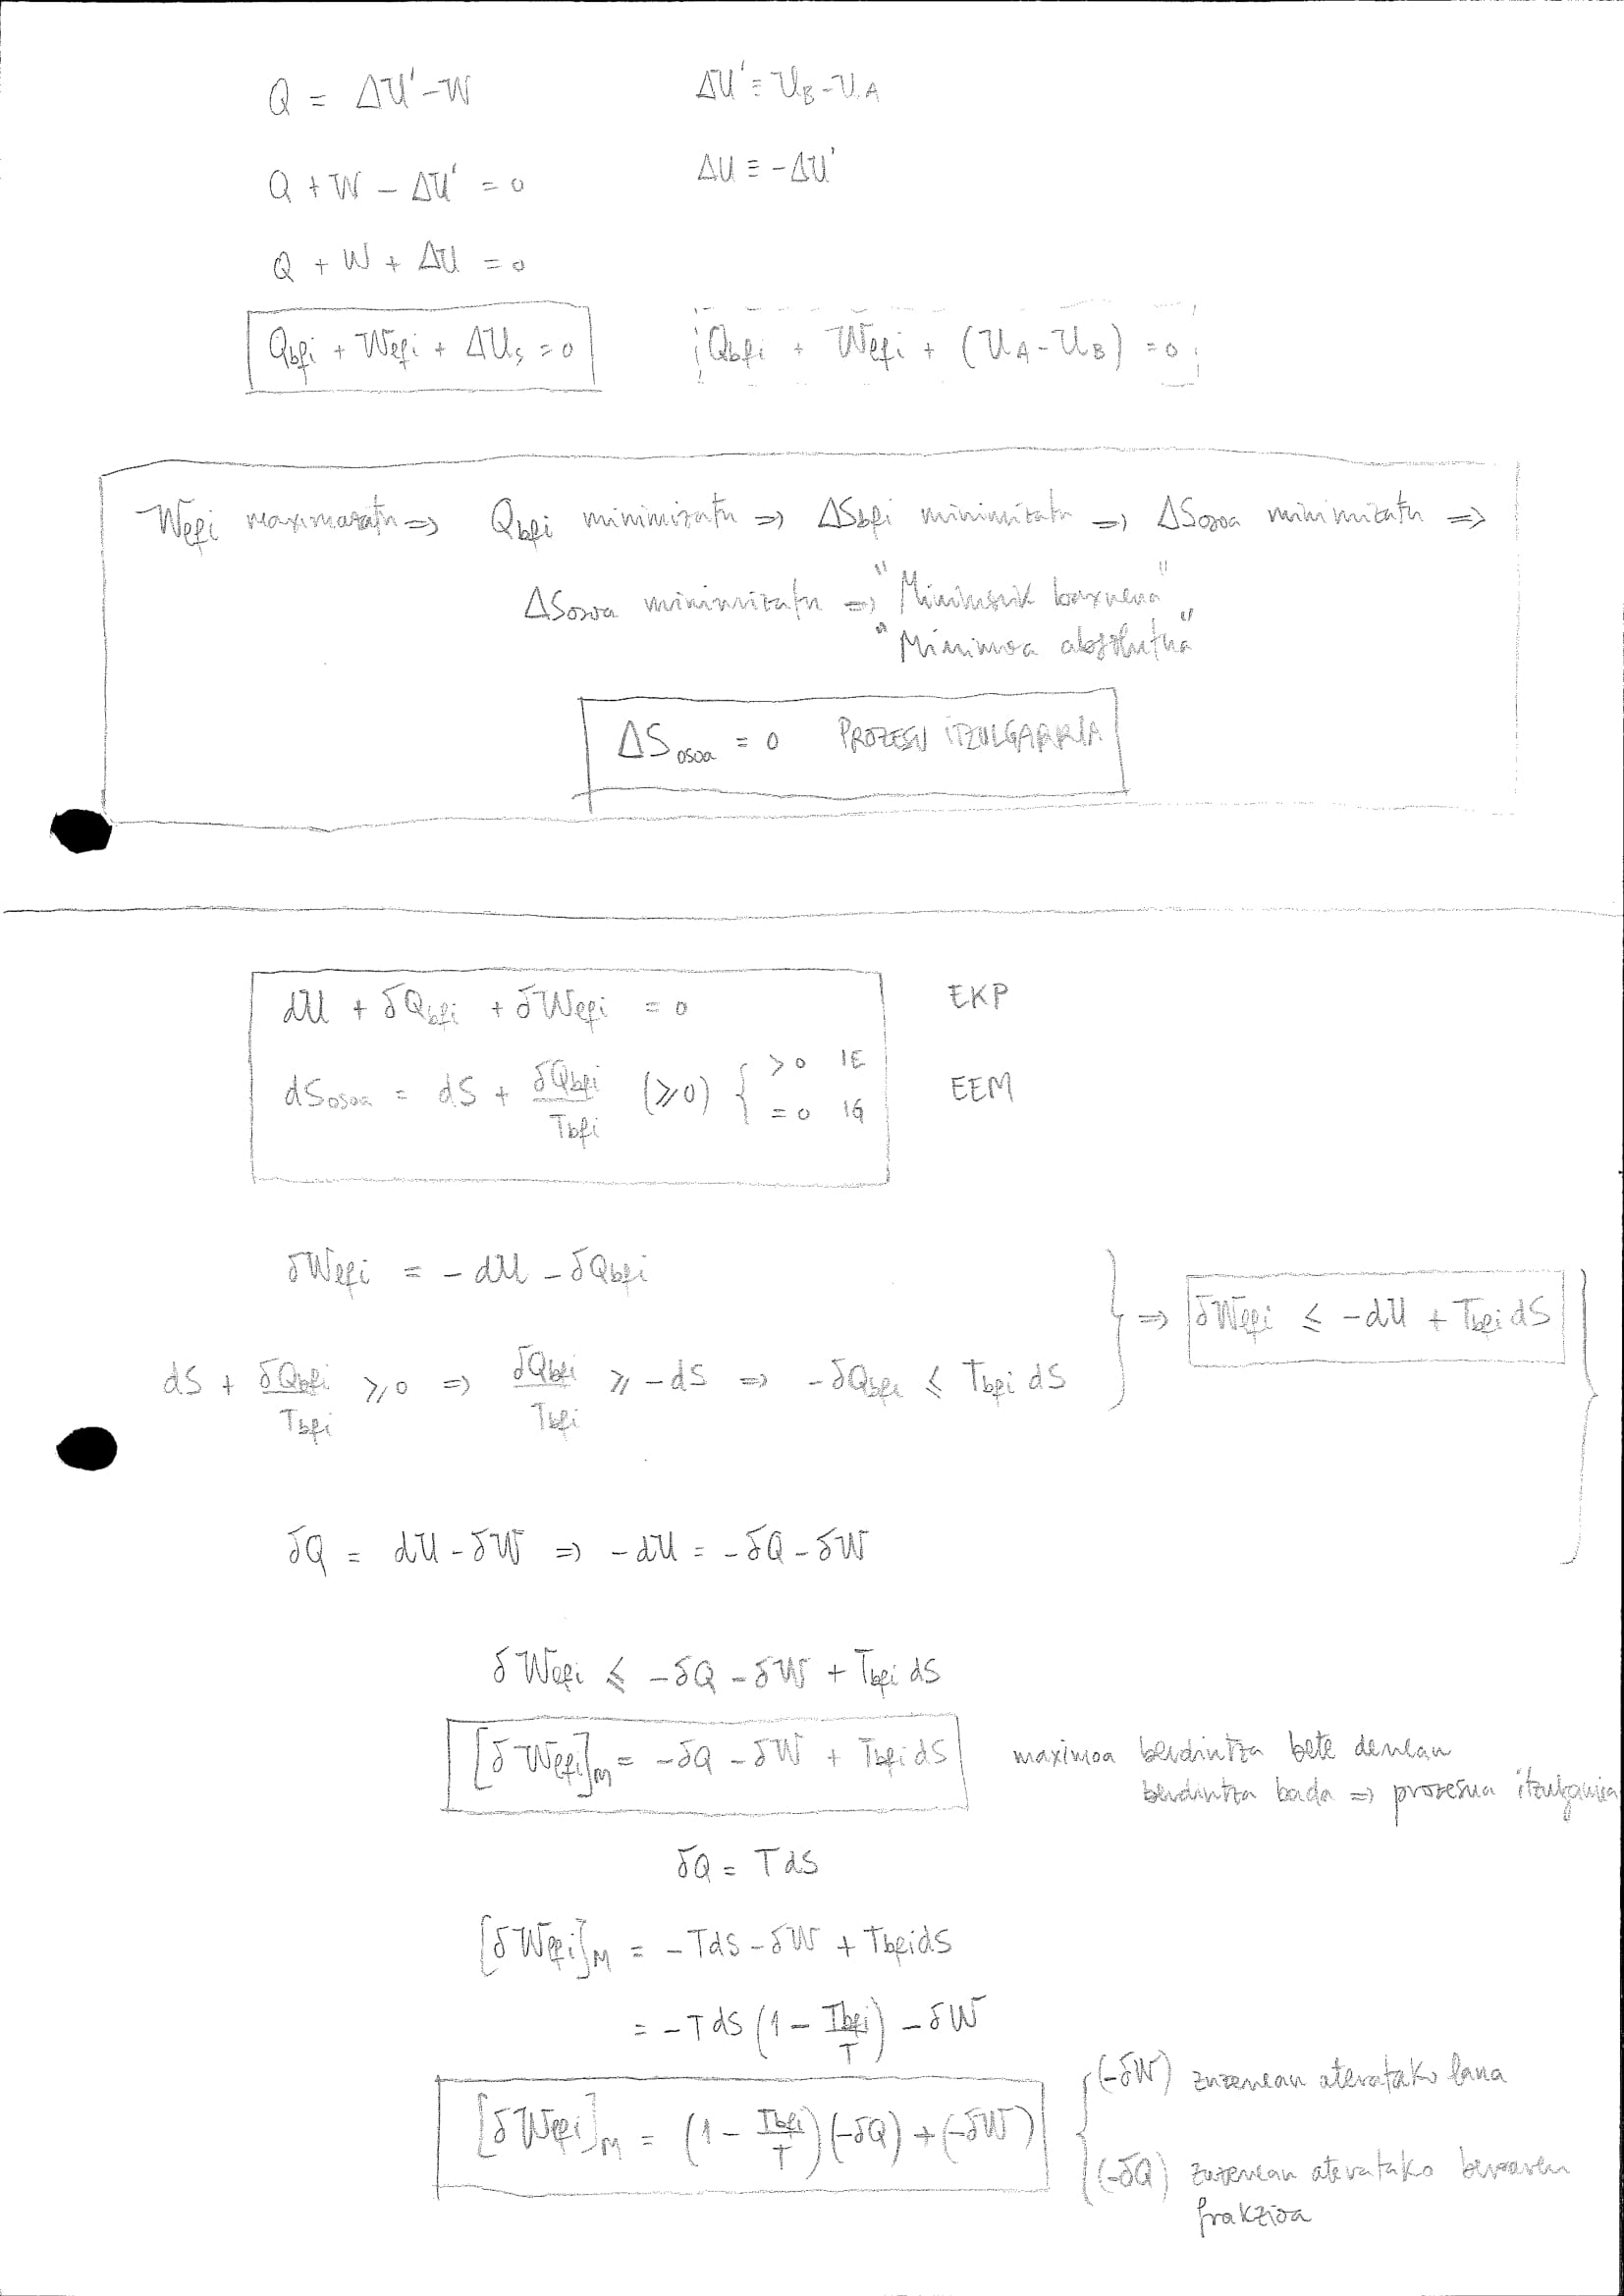 Q = ΔU' - W    ΔU' ≡ U_B - U_A
Q + W - ΔU' = 0    ΔU ≡ -ΔU'
Q + W + ΔU = 0
Q_bfi + W_efi + ΔU_s = 0    Q_bfi + W_efi + (U_A - U_B) = 0
W_efi maximizatu ⇒ Q_bfi minimizatu ⇒ ΔS_bfi minimizatu ⇒ ΔS_osoa minimizatu ⇒
ΔS_osoa minimizatu ⇒ "Minimorik baxuena"
"Minimoa absolutua"
ΔS_osoa = 0 PROZESU ITZULGARRIA
dU + δQ_bfi + δW_efi = 0    EKP
dS_osoa = dS + δQ_bfi / T_bfi (≥0) { >0 IE
=0 IG    EEM
δW_efi = -dU - δQ_bfi
dS + δQ_bfi / T_bfi ≥ 0 ⇒ δQ_bfi / T_bfi ≥ -dS ⇒ -δQ_bfi ≤ T_bfi dS } ⇒ δW_efi ≤ -dU + T_bfi dS }
δQ = dU - δW ⇒ -dU = -δQ - δW
δW_efi ≤ -δQ - δW + T_bfi dS
[δW_efi]_M = -δQ - δW + T_bfi dS    maximoa berdintza bete denean
berdintza bada ⇒ prozesua itzulgarria
δQ = TdS
[δW_efi]_M = -TdS - δW + T_bfi dS
= -TdS (1 - T_bfi / T) - δW
[δW_efi]_M = (1 - T_bfi / T)(-δQ) + (-δW)    { (-δW) zuzenean ateratako lana
(-δQ) zuzenean ateratako beroaren
frakzioa